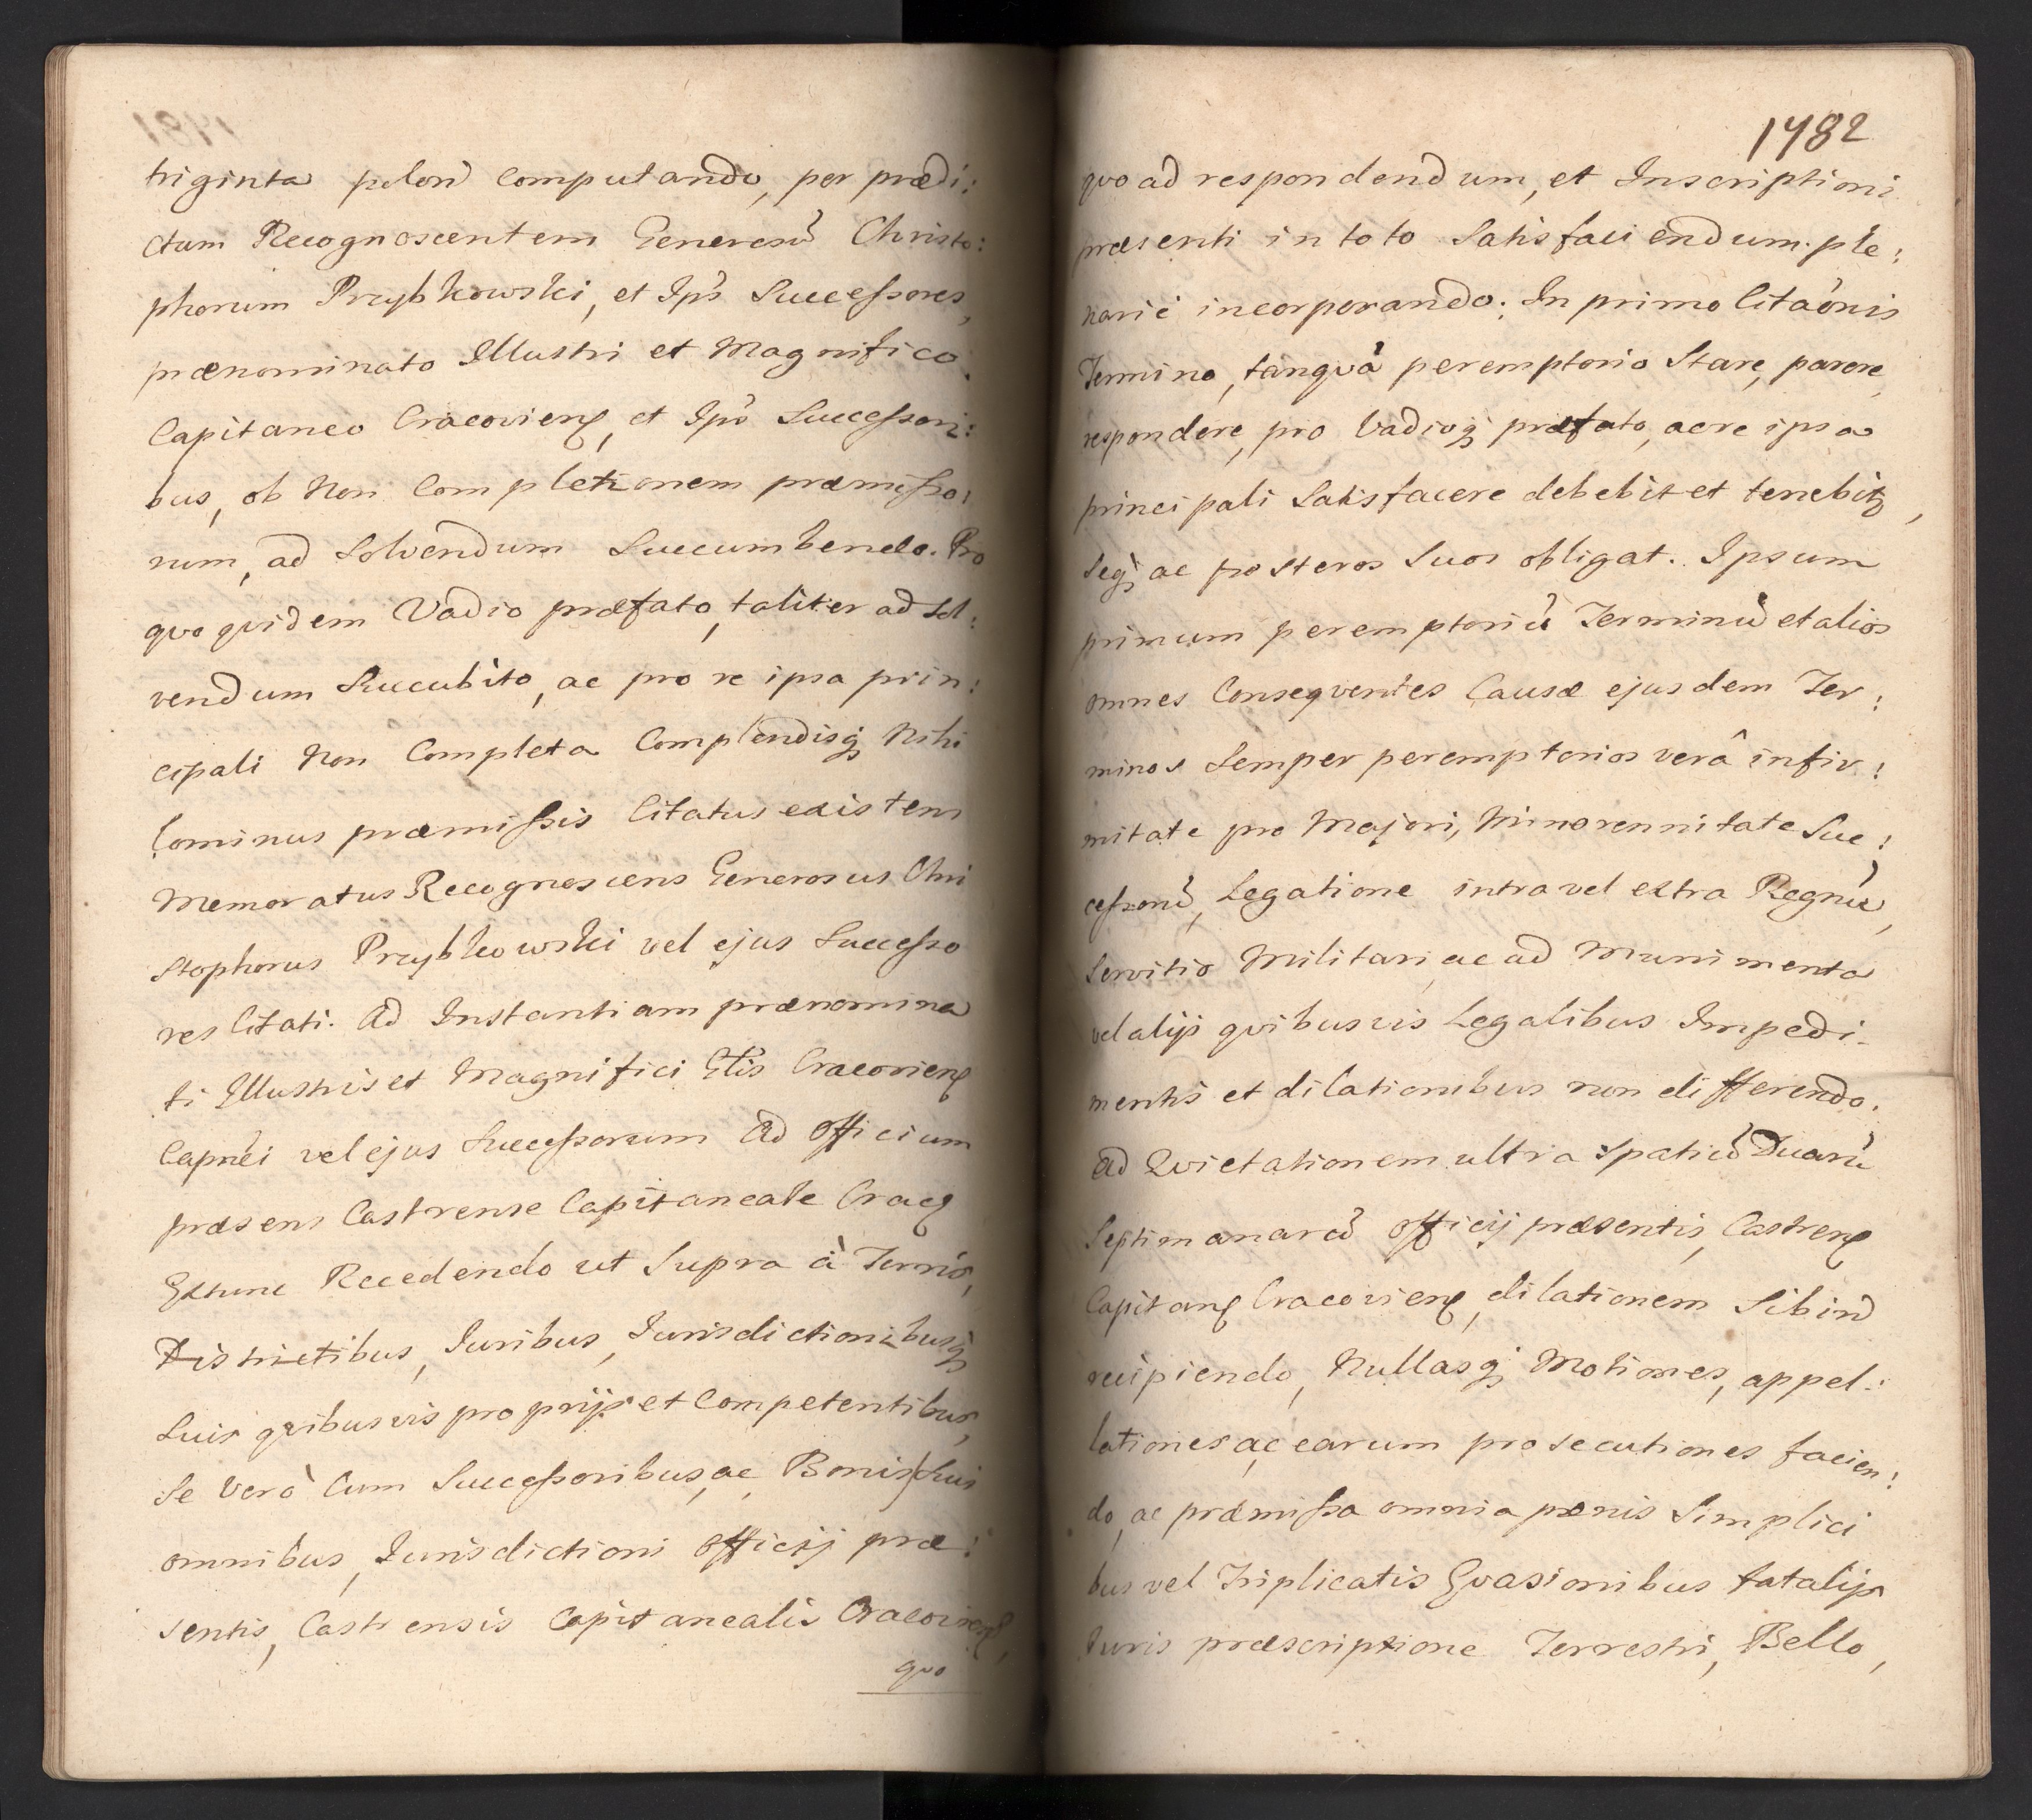 triginta polon̄ computando, per prædi:
ctum Recognoscentem Generosū Christo:
phorum Przybkowski, et Ips̄ Successores,
prænominato Illustri et Magnifico
Capitaneo Cracovien̄, et Ips̄ Successori:
bus, ob Non Completionem præmisso:
rum, ad Solvendum Succumbendo. Pro
quo quidem Vadio præfato, taliter ad sol:
vendum Succubito, ac pro re ipsa prin:
cipali Non Completa Complendisq; Nihi
lominus præmissis Citatus existens
Memoratus Recognoscens Generosus Chri
stophorus Przybkowski vel ejus Successo
res Citati. Ad Instantiam prænomina
ti Illustris et Magnifici Glis Cracovien̄
Capnei vel ejus Successorum Ad Officium
præsens Castrense Capitaneale Crac̄
Extunc Recedendo ut Supra à Terris,
Districtibus, Juribus, Jurisdictionibusq;
Suis quibusvis proprijs et Competentibus,
Se verò Cum Successoribus, ac Bonis Suis
omnibus, Jurisdictioni Officij præ:
sentis, Castrensis Capitanealis Cracovien̄,
quo
1482
quo ad respondendum, et Inscriptioni
præsenti in toto Satisfaciendum. ple:
nariè incorporando. In primo Citaōnis
Termino, tanqvā peremptorio Stare, parere,
respondere, pro Vadioq; præfato, ac re ipsa
principali Satisfacere debebit et tenebitʒ,
Seq; ac posteros Suos obligat. Ipsum
primum peremptoriū Terminū et alios
omnes Conseqventes Causæ ejusdem Ter:
minos Semper peremptorios verâ infir:
mitate pro Majori, Minorennitate Suc:
cessorū, Legatione intra vel extra Regnū,
Servitio Militari, ac ad Munimenta
vel alijs qvibusvis Legalibus Impedi
mentis et dilationibus non differendo.
Ad Qvietationem ultra Spatiū Duarū
Septimanarū Officij præsentis, Castren̄
Capitan̄ Cracovien̄, dilationem Sibi nō
recipiendo, Nullasq; Motiones, appel:
lationes, ac earum prosecutiones facien:
do, ac præmissa omnia pœnis Simplici
bus vel Triplicatis Evasionibus fatalijs
Juris præscriptione Terrestri, Bello,